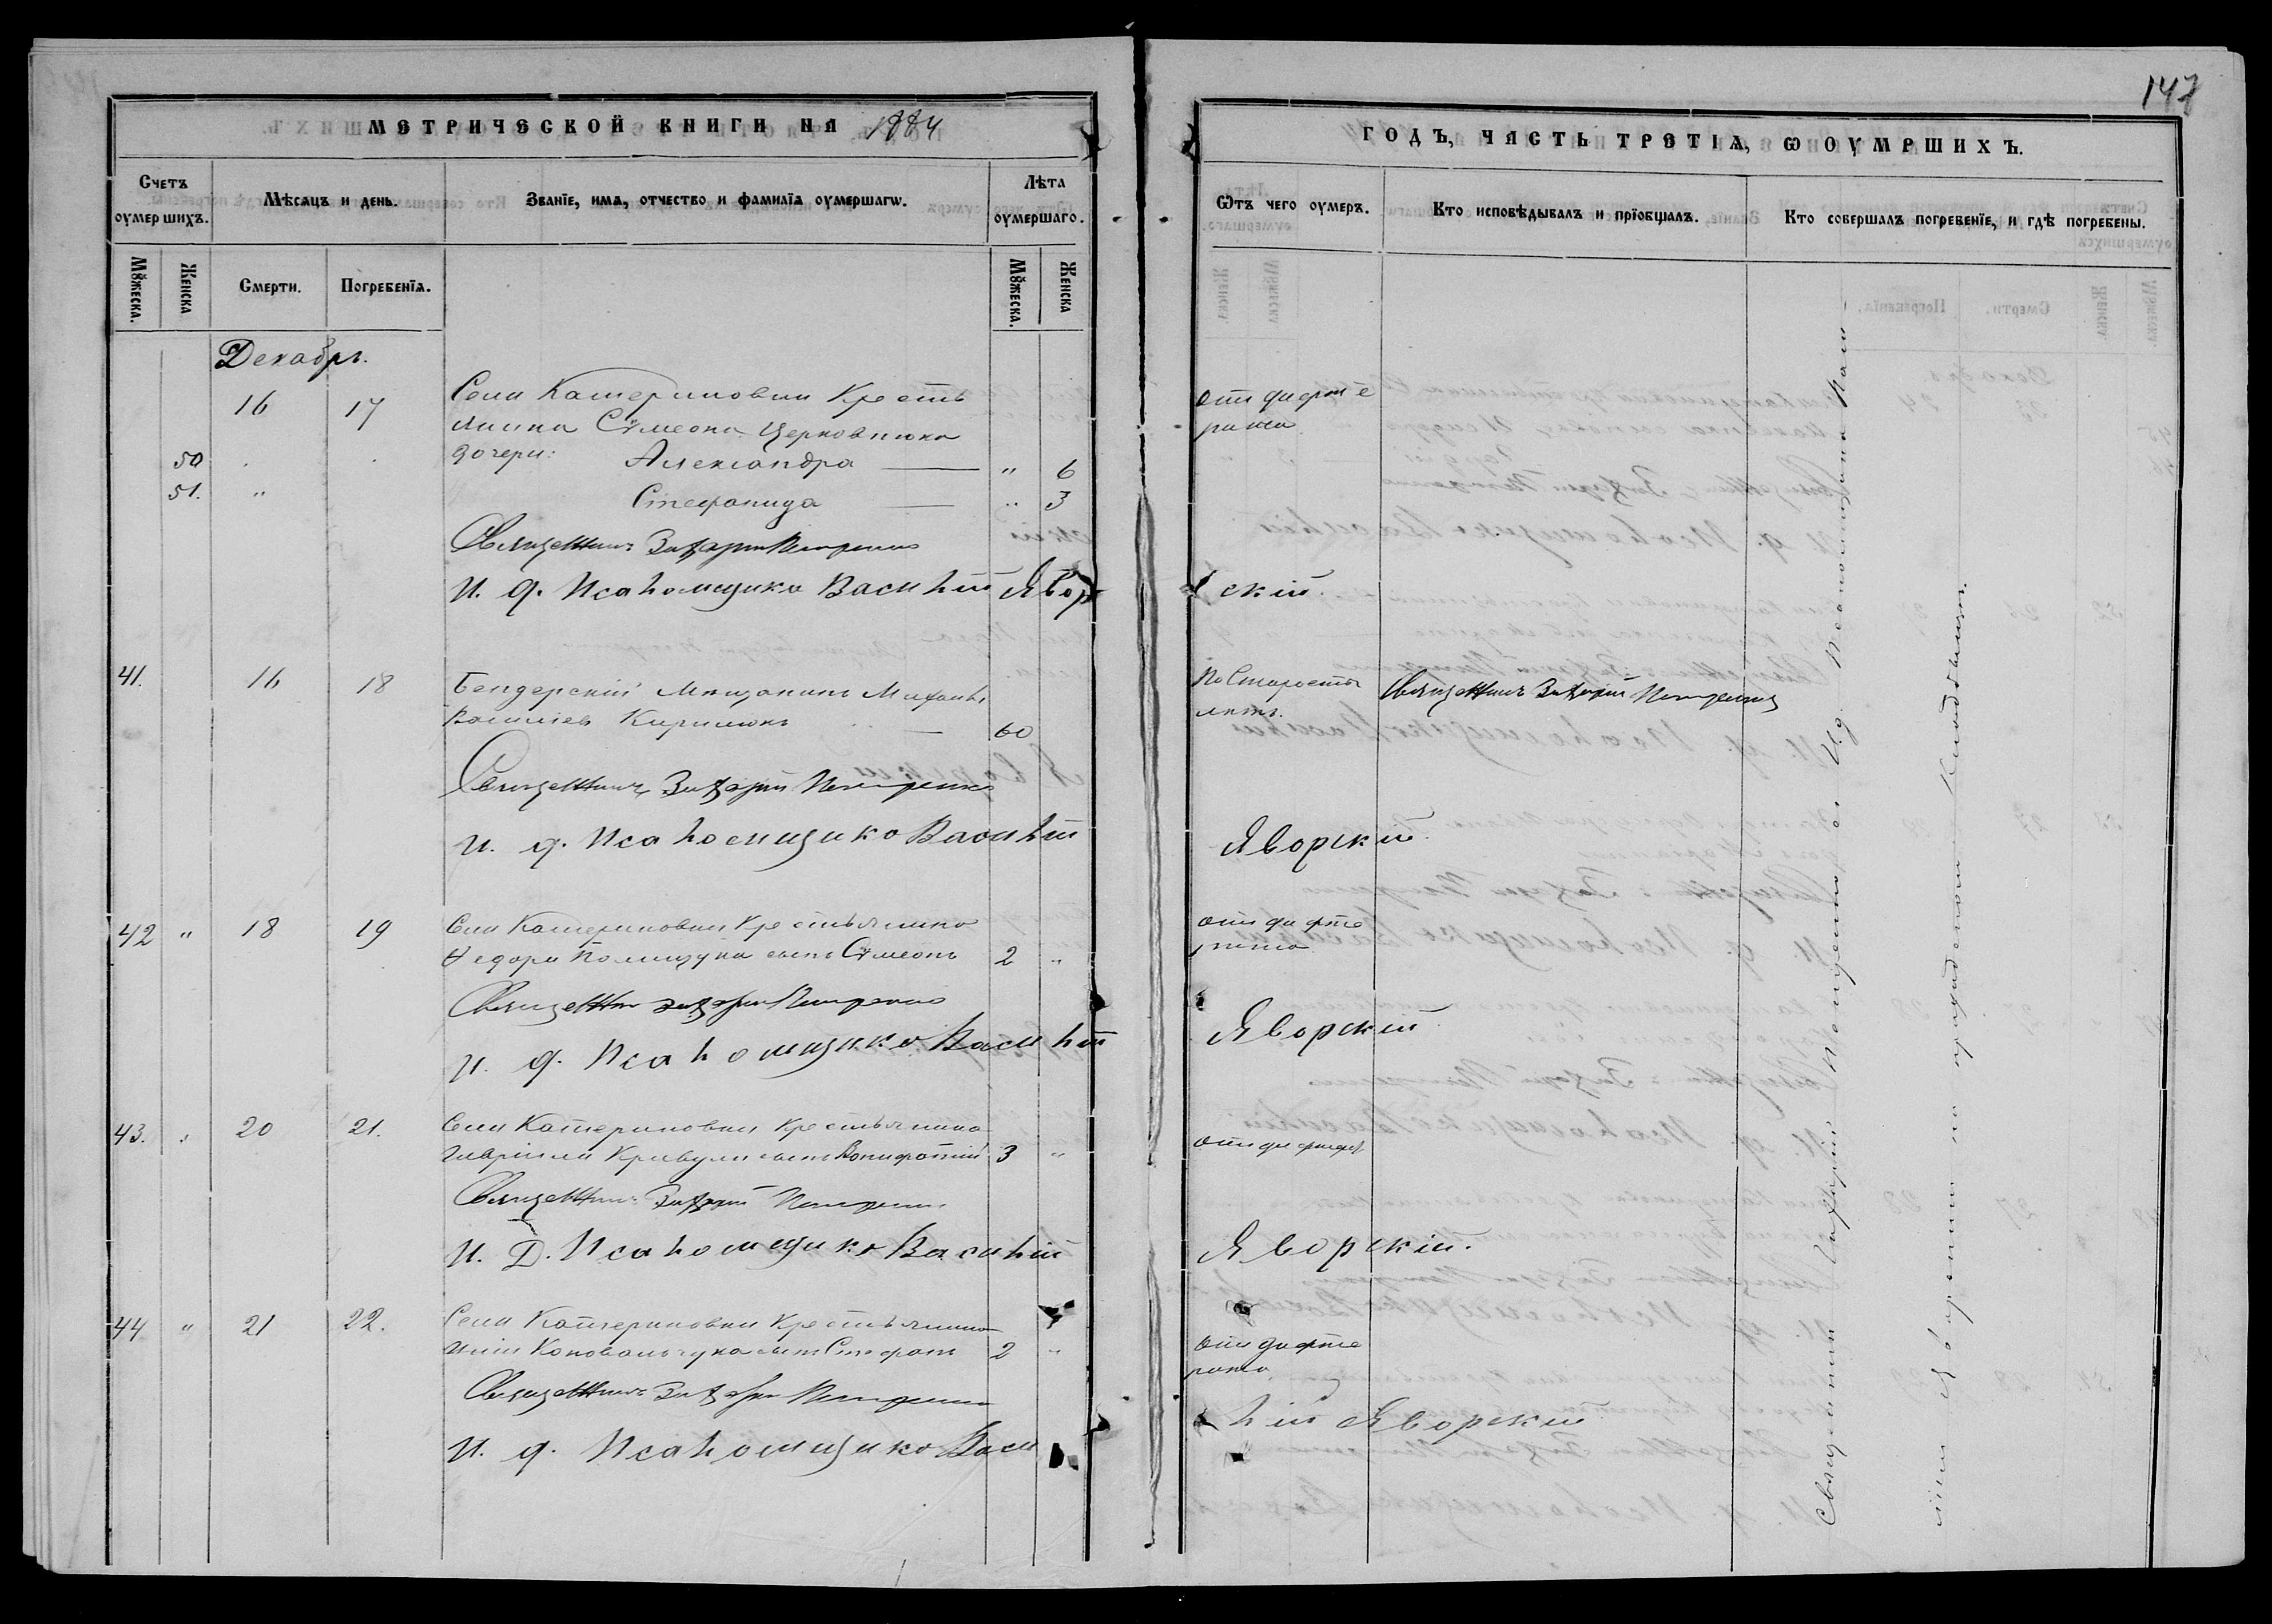 147
МЕТРИЧЕСКОЙ КНИГИ НА 1884
ГОДЪ, ЧАСТЬ ТРЕТІѦ, Ѡ ОУМРШИХЪ.
Счетъ оумершихъ.
Мѣсяцъ и день.
Званїе, имѧ, отчество и фамилїѧ оумершагѡ.
Лѣта оумершаго.
Ѿтъ чего оумеръ.
Кто исповѣдывалъ и прїобщалъ.
Кто совершалъ погребенїе, и гдѣ погребены.
Мꙋжеска.
Женска
Смерти.
Погребенїѧ.
Мꙋжеска.
Женска
Декабрь.
16 17 Села Катериновки Кресть
янина Сѵмеона Церковнюка
дочери:
50 Александра " 6
51. " Стефанида " 3
отъ дифте
рита
Священникъ Захарій Петренко
И. д. Псаломщика Василій Яворскій.
41. 16 18 Бендерскій Мещанинъ Михаилъ
Васильевъ Кирилюкъ 60
По Старости
лѣтъ.
Священникъ Захарій Петренко
Священникъ Захарій Петренко
и. д. Псаломщика Василій Яворскій.
42 " 18 19 Села Катериновки Крестьянина
Ѳедора Полищука сынъ Сѵмеонъ 2 "
отъ дифте
рита
Священникъ Захарій Петренко
и. д. Псаломщика Василій Яворскій.
43. " 20 21. Села Катериновки Крестьянина
Гавріила Кривули сынъ Вонифатій 3 "
отъ дифтер.
Священникъ Захарій Петренко
И. Д. Псаломщика Василій Яворскій.
44 " 21 22. Села Катериновки Крестьянина
Коновальчука сынъ Стефанъ 2 "
отъ дифте
рита
Священникъ Захарій Петренко
и. д. Псаломщика Василій Яворскій
Священникъ Захарій Петренко съ И.д. Псаломщика
на приходскомъ кладбищѣ.